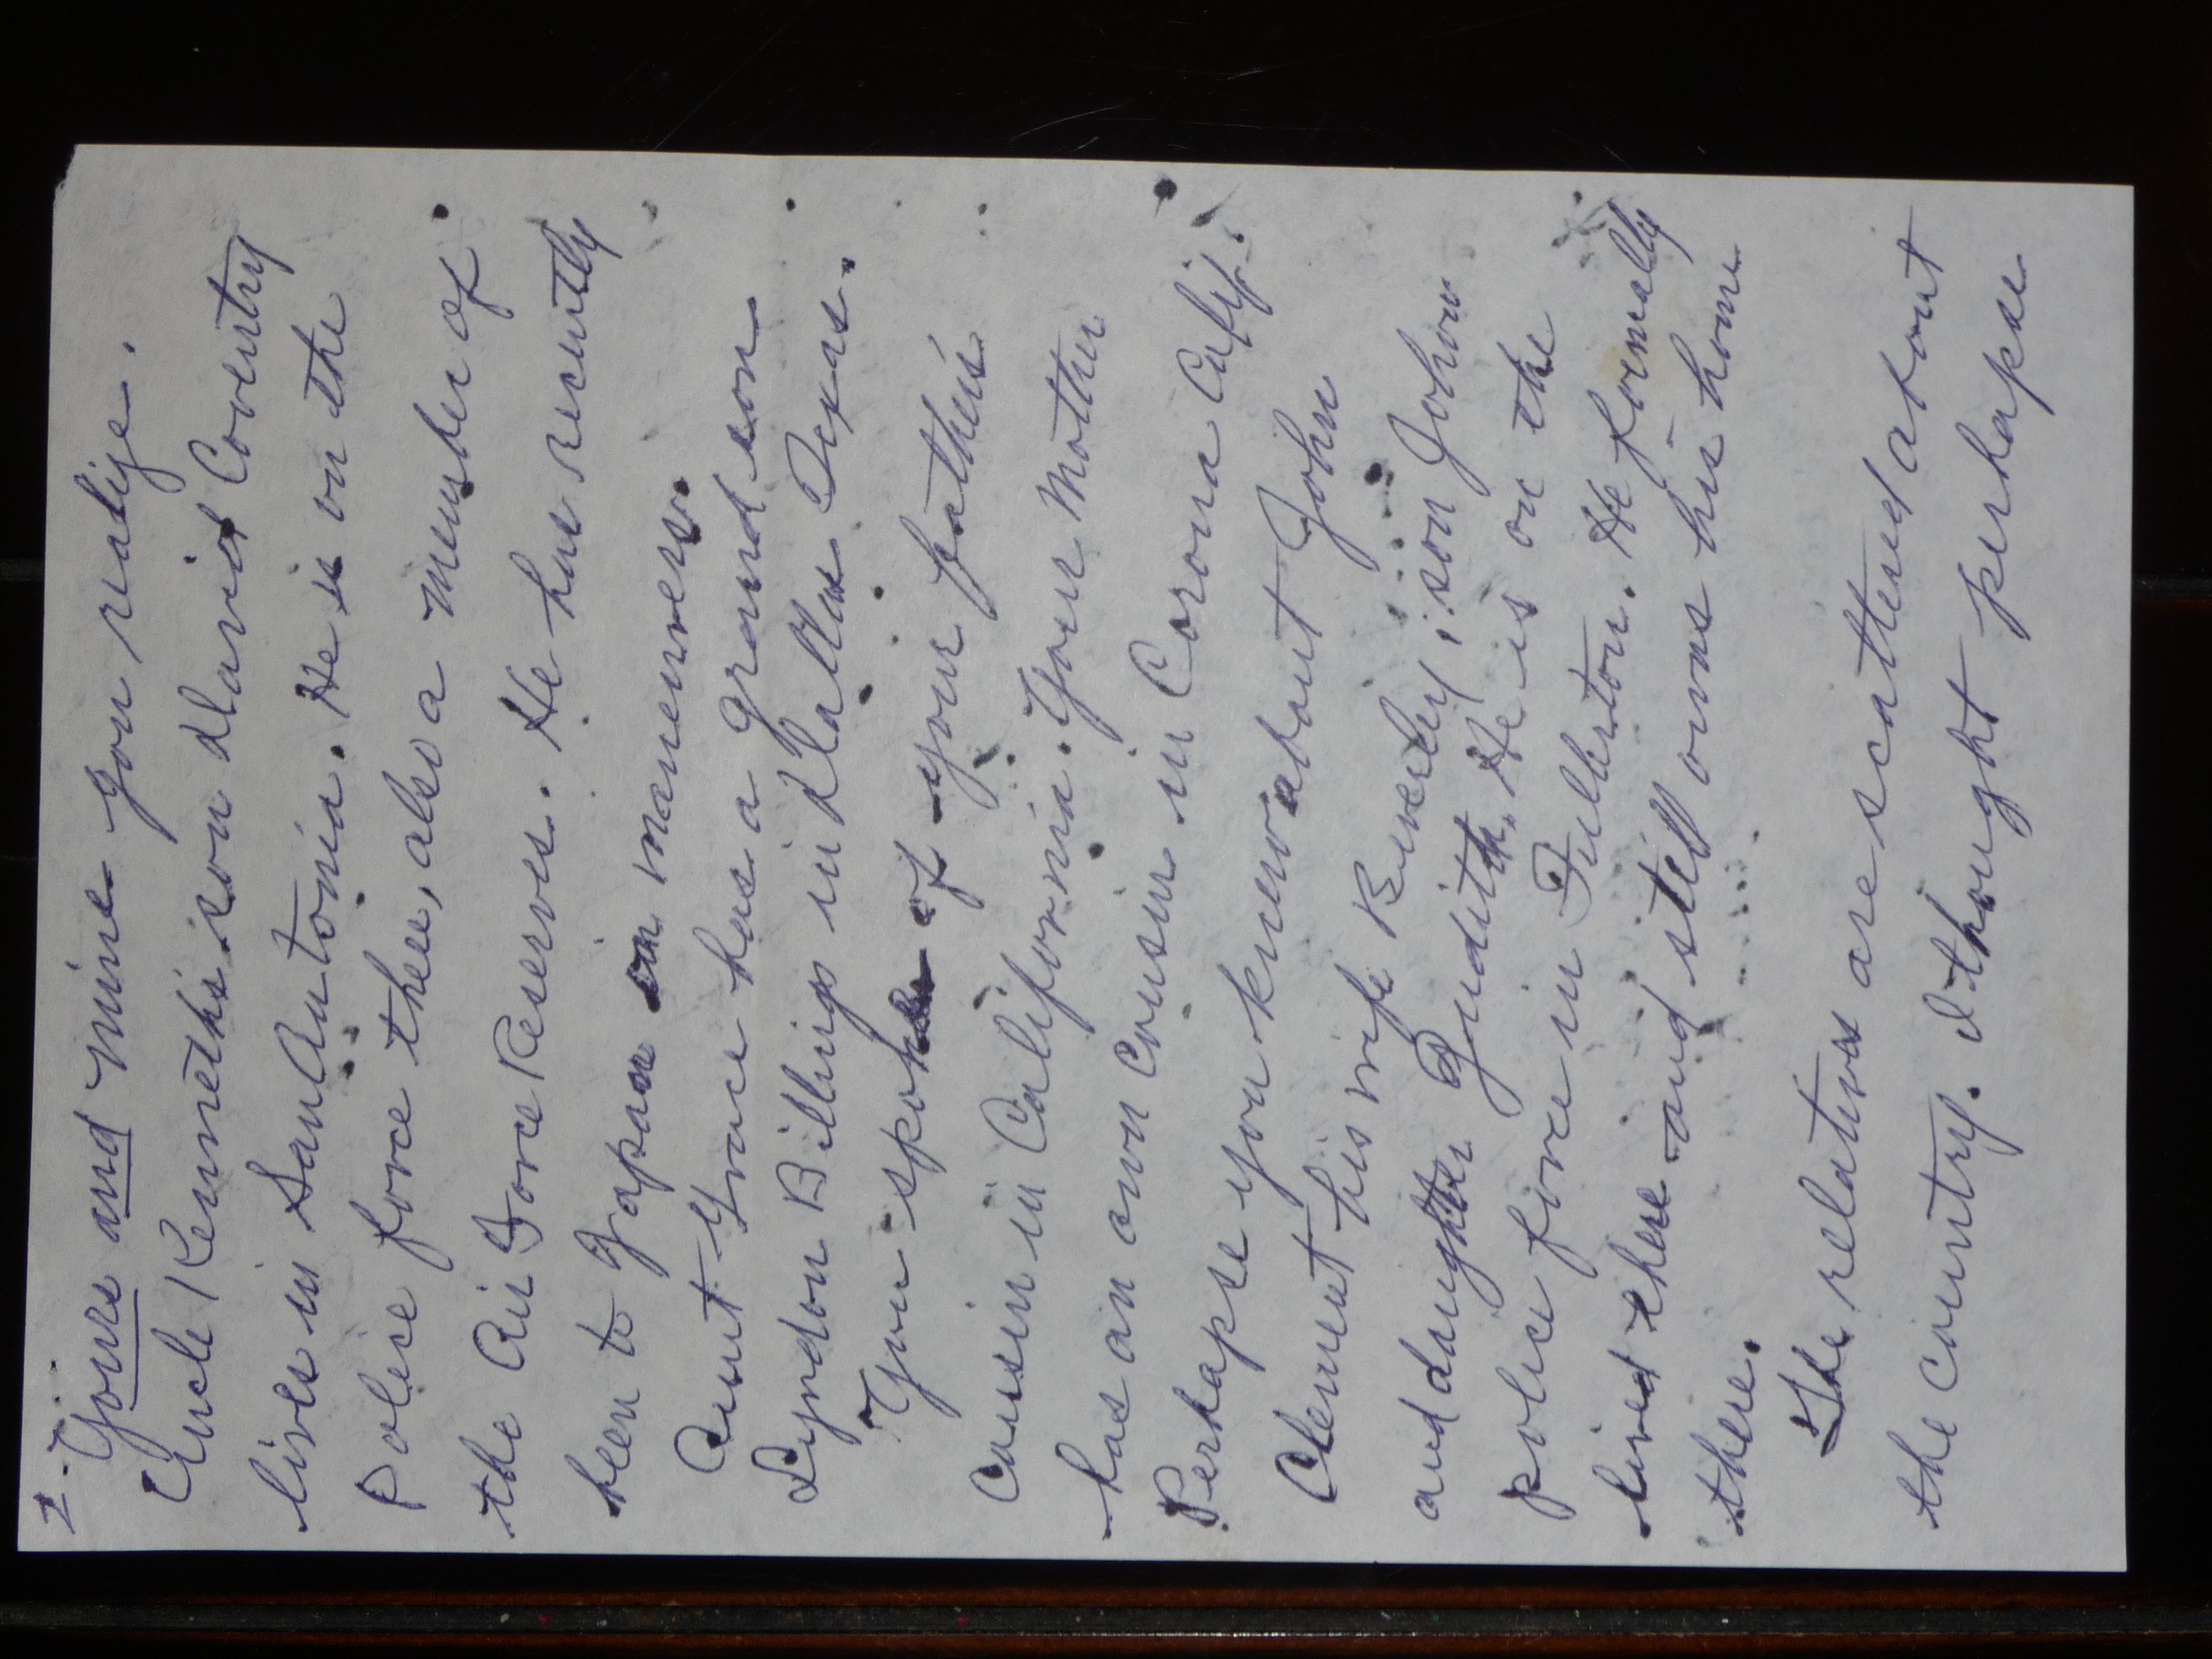 2.
Yours and mine you realize.
Uncle Kenneth's son David Coventry
lives in San Antonia. He is on the
police force there, also a member of
the Air Force Reserves. He has recently
been to Japan on maneuvers.
Aunt Grace has a grand son
Lyndon Billings in Dallas Texas.
You spoke of your father's
cousin in California. Your Mother
has an own cousin in Corona Calif.
Perhapse you know about John
Clement his wife Beverley, son John
and daughter Judith. He is on the
police force in Fullerton. He formally
lived there and still owns his home
there.
The relatives are scattered about
the country. I thought perhapse